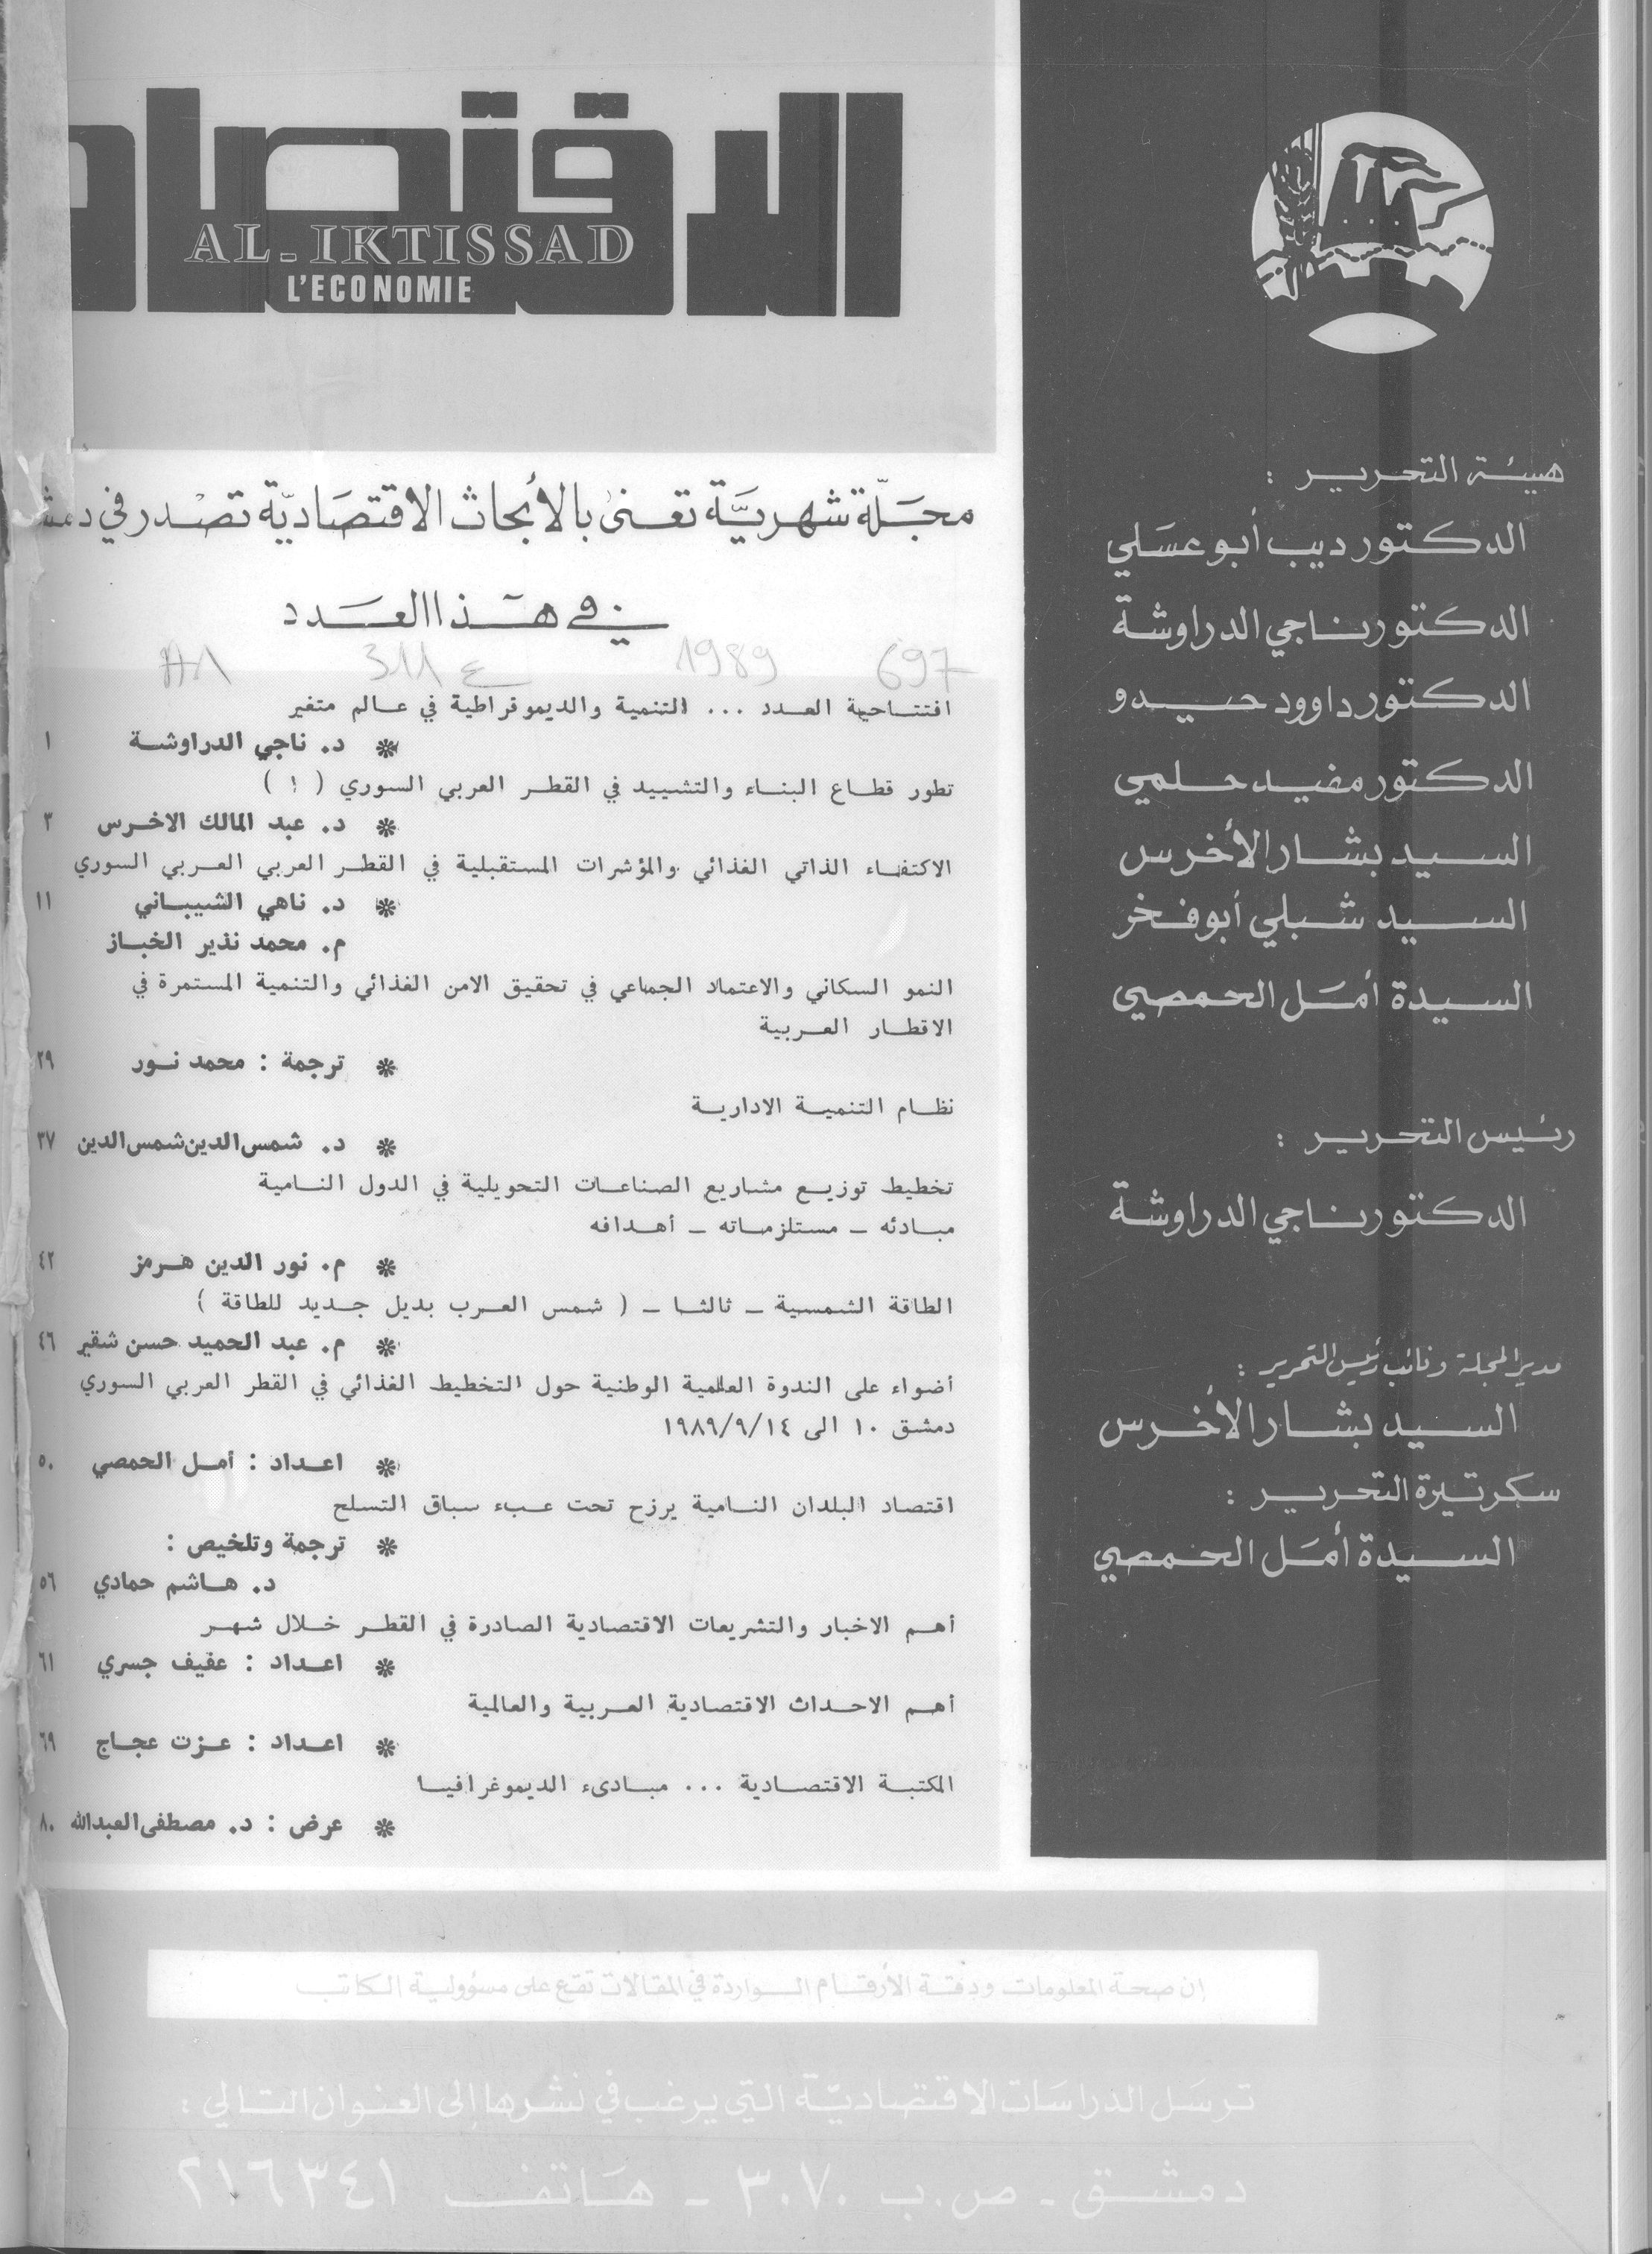 هيئة التحرير :
الدكتور ديب أبو عسلي
الدكتور ناجي الدراوشة
الدكتور داوود حيدو
الدكتور مفيد حلمي
السيد بشار الأخرس
السيد شبلي أبو فخر
السيدة أمل الحمصي
رئيس التحرير :
الدكتور ناجي الدراوشة
مدير المجلة ونائب رئيس التحرير :
السيد بشار الأخرس
سكرتيرة التحرير :
السيدة أمل الحمصي
الاقتصاد
AL-IKTISSAD
L'ECONOMIE
مجلة شهرية تعنى بالأبحاث الاقتصادية تصدر في
في هذا العدد
697 1989 ع 311
افتتاحية العدد ... التنمية والديموقراطية في عالم متغير
* د. ناجي الدراوشة ١
تطور قطاع البناء والتشييد في القطر العربي السوري ( ١ )
* د. عبد المالك الاخرس ٣
الاكتفاء الذاتي الغذائي والمؤشرات المستقبلية في القطر العربي العربي السوري
* د. ناهي الشيباني ١١
م. محمد نذير الخباز
النمو السكاني والاعتماد الجماعي في تحقيق الامن الغذائي والتنمية المستمرة في
الاقطار العربية
* ترجمة : محمد نور ٢٩
نظام التنمية الادارية
* د. شمس الدين شمس الدين ٣٧
تخطيط توزيع مشاريع الصناعات التحويلية في الدول النامية
مبادئه - مستلزماته - أهدافه
* م. نور الدين هرمز ٤٢
الطاقة الشمسية - ثالثا - ( شمس العرب بديل جديد للطاقة )
* م. عبد الحميد حسن شقير ٤٦
أضواء على الندوة العلمية الوطنية حول التخطيط الغذائي في القطر العربي السوري
دمشق ١٠ الى ١٩٨٩/٩/١٤
* اعداد : أمل الحمصي ٥٠
اقتصاد البلدان النامية يرزح تحت عبء سباق التسلح
* ترجمة وتلخيص :
د. هاشم حمادي ٥٦
أهم الاخبار والتشريعات الاقتصادية الصادرة في القطر خلال شهر
* اعداد : عفيف جسري ٦١
أهم الاحداث الاقتصادية العربية والعالمية
* اعداد : عزت عجاج ٦٩
المكتبة الاقتصادية ... مبادىء الديموغرافيا
* عرض : د. مصطفى العبدالله ٨٠
إن صحة المعلومات ودقة الأرقام الواردة في المقالات تقع على مسؤولية الكاتب
ترسل الدراسات الاقتصادية التي يرغب في نشرها إلى العنوان التالي :
دمشق - ص.ب ٣٠٧٠ - هاتف ٢١٦٣٤١